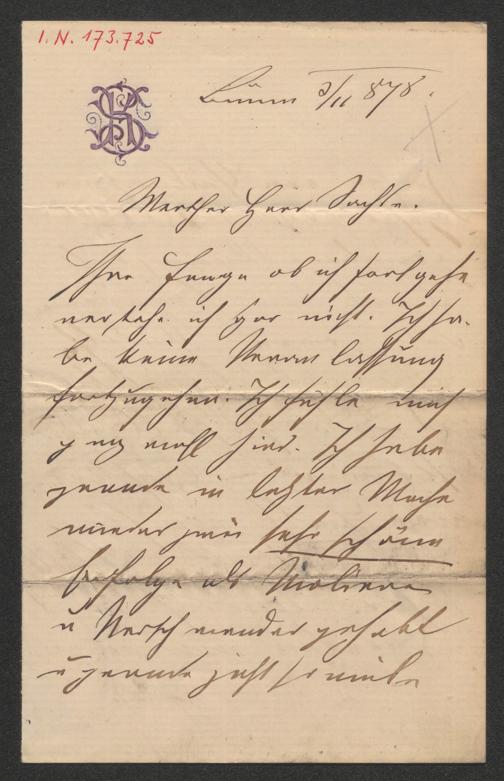 I.N. 173.725
Brünn 3/11 878.
Werther Herr Sachs.
Ihre Frage ob ich fortgehe
verstehe ich gar nicht. Ich ha-
be keine Veranlassung
fortzugehen. Ich fühle mich
ganz wohl hier. Ich habe
gerade in letzter Woche
wieder zwei sehr schöne
Erfolge als Valentin
u Verschwender gehabt
u gerade jetzt so viele